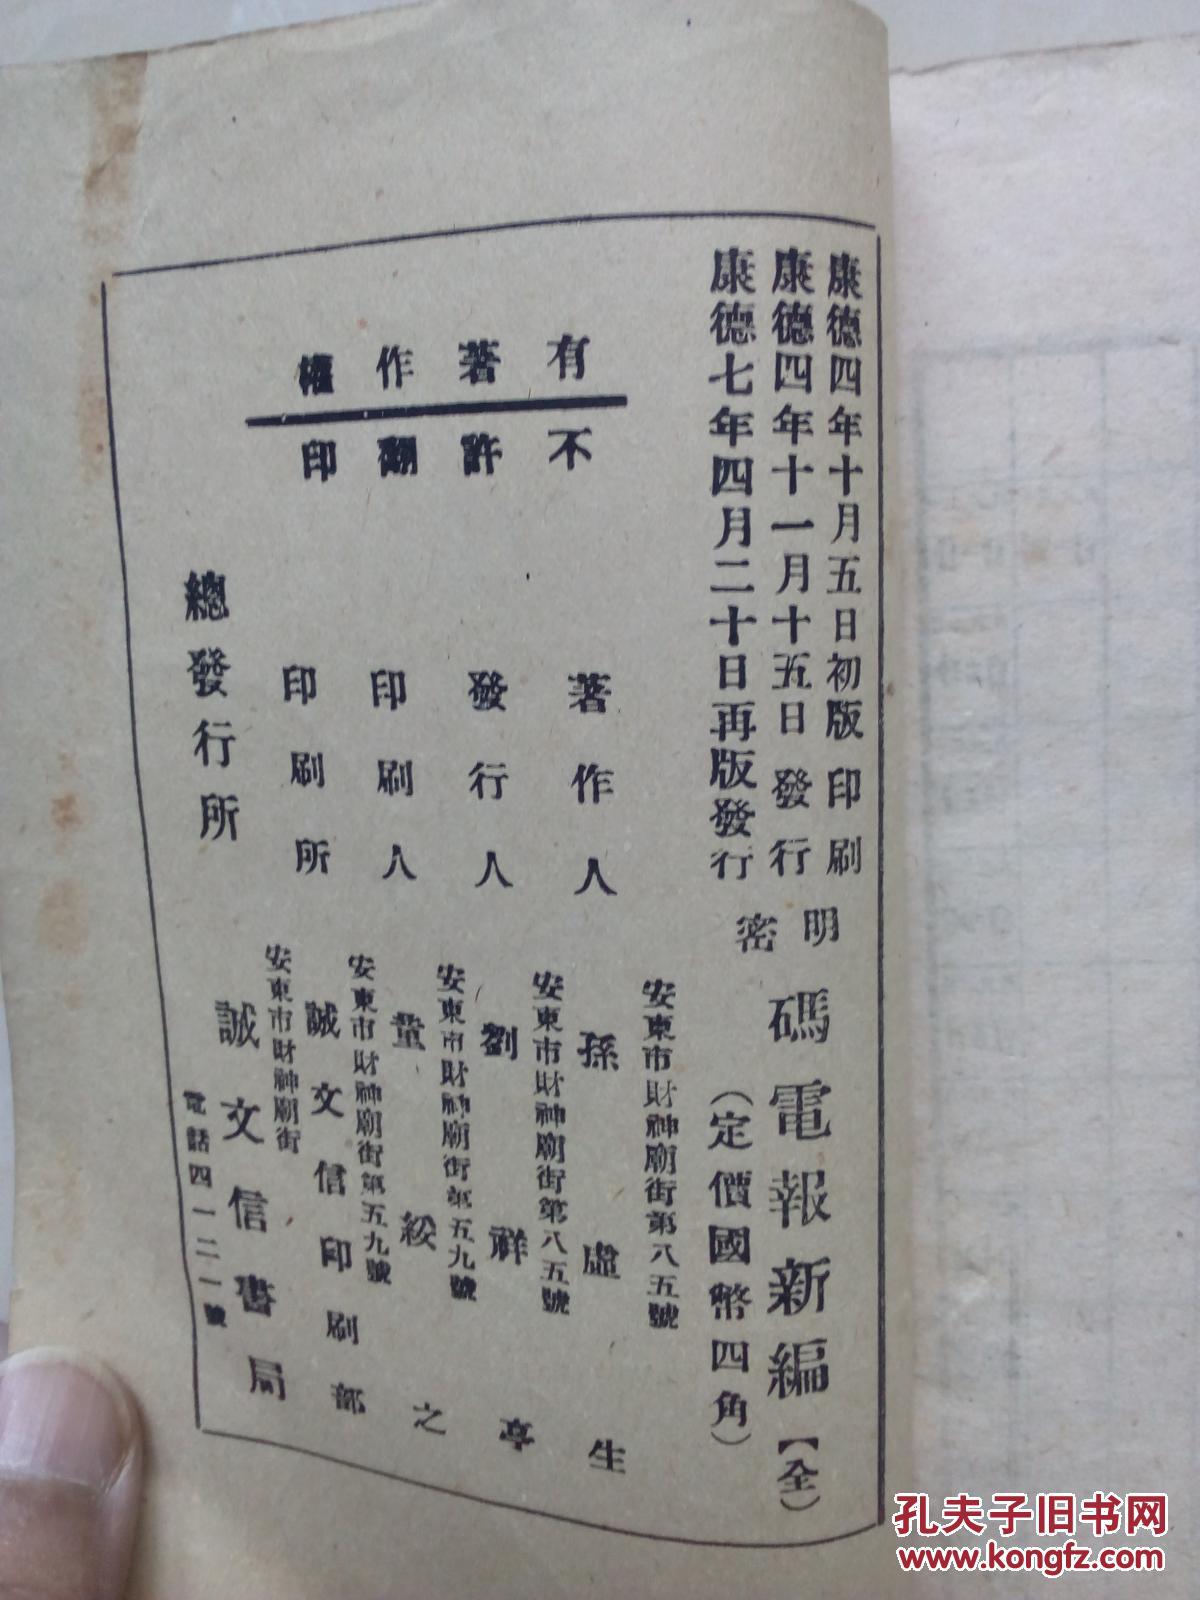 康德四年十月五日初版印刷
康德四年十一月十五日發行
康德七年四月二十日再版發行
明密
碼電報新編【全】
（定價國幣四角）
有著作權
不許翻印
安東市財神廟街第八五號
著作人 孫虛生
安東市財神廟街第八五號
發行人 劉祥亭
安東市財神廟街第五九號
印刷人 童綏之
安東市財神廟街第五九號
印刷所 誠文信印刷部
安東市財神廟街
總發行所 誠文信書局
電話四一二一號
孔夫子旧书网
www.kongfz.com